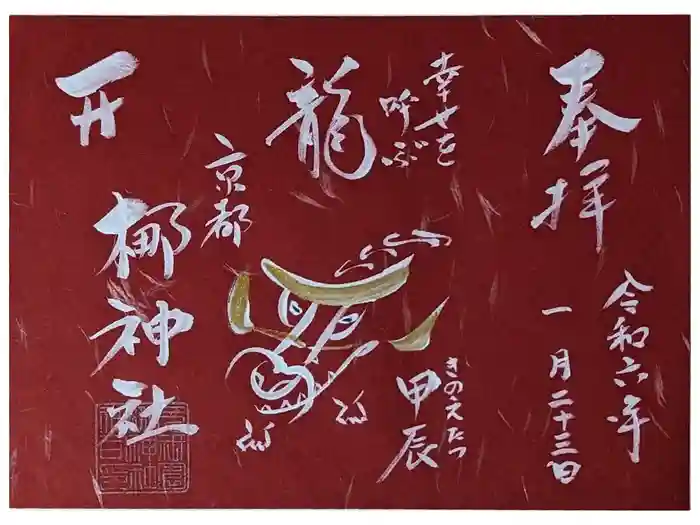 奉拝
令和六年
一月二十三日
幸せを
呼ぶ
龍
きのえたつ
甲辰
京都
梛神社